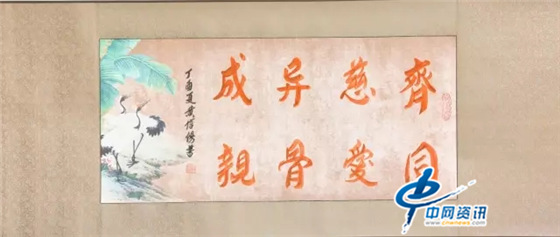 齊同
慈愛
异骨
成親
丁酉夏黄信書
中网资讯
www.cnwnews.com